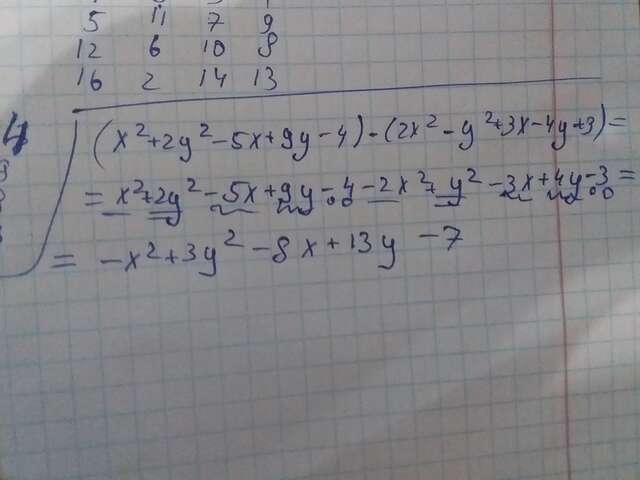 5 11 7 9
12 6 10 8
16 2 14 13
4
(x²+2y²-5x+9y-4)-(2x²-y²+3x-4y+3)=
=x²+2y²-5x+9y-4-2x²+y²-3x+4y-3=
=-x²+3y²-8x+13y-7